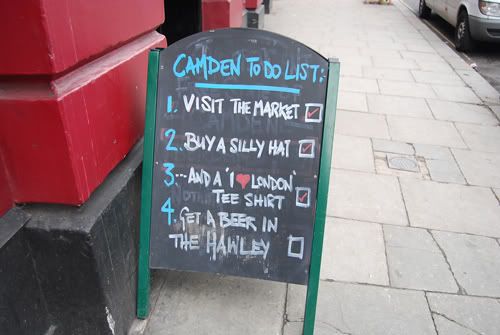 CAMDEN TO DO LIST:
1. VISIT THE MARKET
2. BUY A SILLY HAT
3...AND A 'I ♥ LONDON'
TEE SHIRT
4. GET A BEER IN
THE HAWLEY